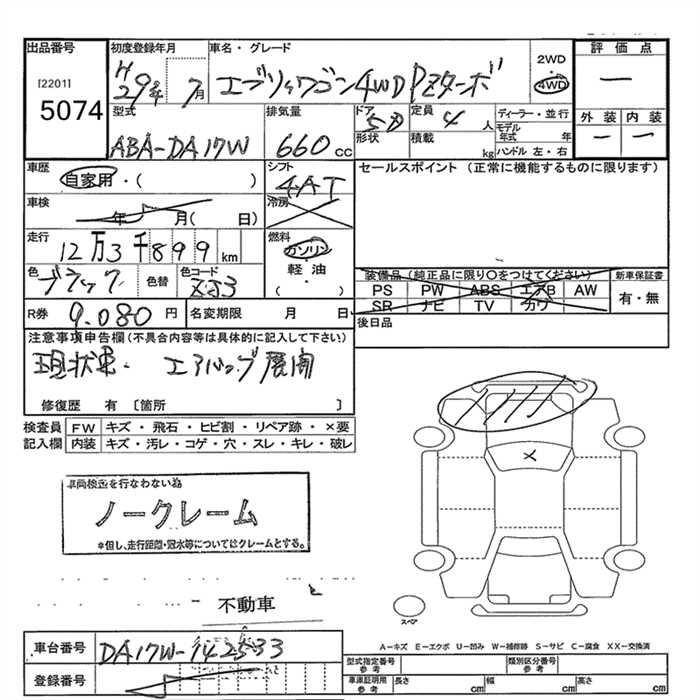 出品番号
[2201]
5074
初度登録年月
H29年 7月
車名・グレード
エブリィワゴン 4WD PZターボ
2WD
4WD
評価点
ー
型式
ABA-DA17W
排気量
660 cc
ドア
5D
形状
定員
4 人
積載
kg
ディーラー・並行
モデル年式 年
ハンドル 左・右
外装 内装
ー ー
車歴
自家用・( )
シフト
4AT
セールスポイント (正常に機能するものに限ります)
車検
年 月( 日)
冷房
走行
12万3千899 km
燃料
ガソリン
軽油
( )
色
ブラック
色替
色コード
ZJ3
装備品 (純正品に限り○をつけてください)
PS PW ABS エアB AW
SR ナビ TV カワ
新車保証書
有・無
R券
9.080 円
名変期限 月 日
後日品
注意事項申告欄(不具合内容等は具体的に記入して下さい)
現状車・ エアバッグ展開
修復歴 有 〔箇所 〕
検査員 FW キズ・飛石・ヒビ割・リペア跡・×要
記入欄 内装 キズ・汚レ・コゲ・穴・スレ・キレ・破レ
車両検査を行なわない為
ノークレーム
*但し、走行距離・冠水等についてはクレームとする。
不動車
スペア
A-キズ E-エクボ U-凹み W-補修跡 S-サビ C-腐食 XX-交換済
車台番号
DA17W-142533
登録番号
型式指定番号 参考
類別区分番号 参考
車庫証明用 参考 長さ cm 幅 cm 高さ cm